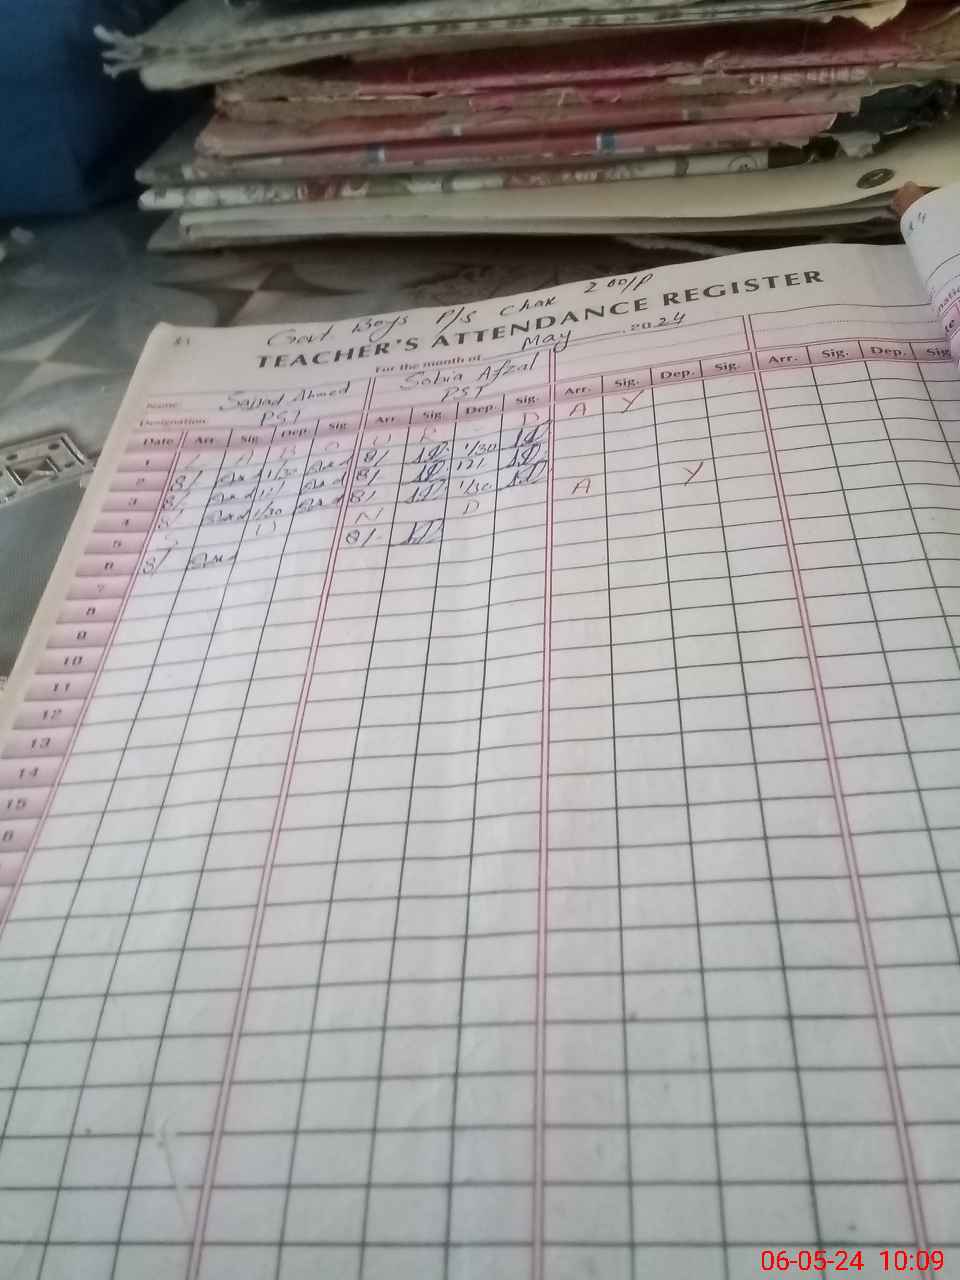 Govt Boys P/S Chak 200/P
TEACHER'S ATTENDANCE REGISTER
For the month of May 2024
Name Sajjad Ahmed Sobia Afzal
Designation PST PST
Date Arr. Sig. Dep. Sig. Arr. Sig. Dep. Sig. Arr. Sig. Dep. Sig. Arr. Sig. Dep. Sig.
1 L A B O U R D A Y
2 8/ 1/30 8/ 1/30
3 8/ 12/ 8/ 12/
4 8/ 1/30 8/ 1/30
5 S U N D A Y
6 8/ 8/
7
8
9
10
11
12
13
14
15
06-05-24 10:09